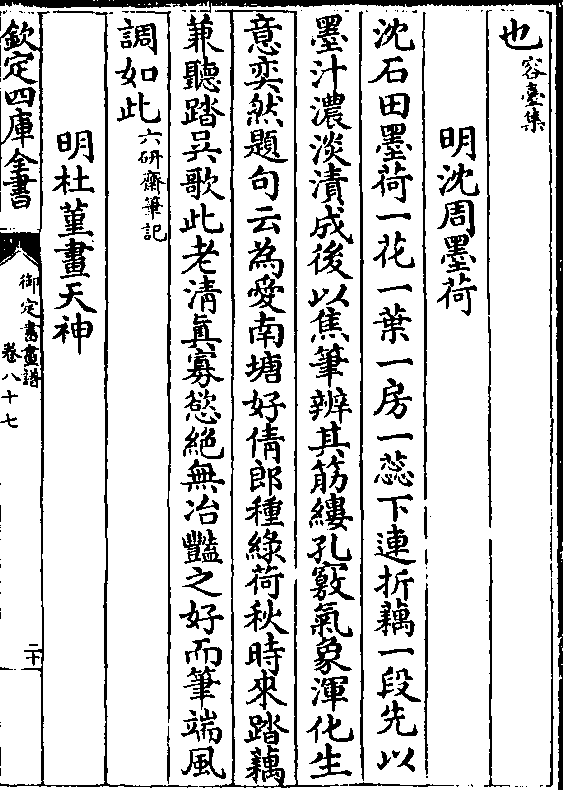 也容臺集
明沈周墨荷
沈石田墨荷一花一葉一房一蕊下連折藕一段先以
墨汁濃淡漬成後以焦筆辨其筋縷孔竅氣象渾化生
意奕然題句云為愛南塘好倩郎種綠荷秋時來踏藕
兼聽踏吳歌此老清真寡慾絕無冶豔之好而筆端風
調如此六研齋筆記
明杜堇畫天神
欽定四庫全書
御定書畫譜
卷八十七
二十